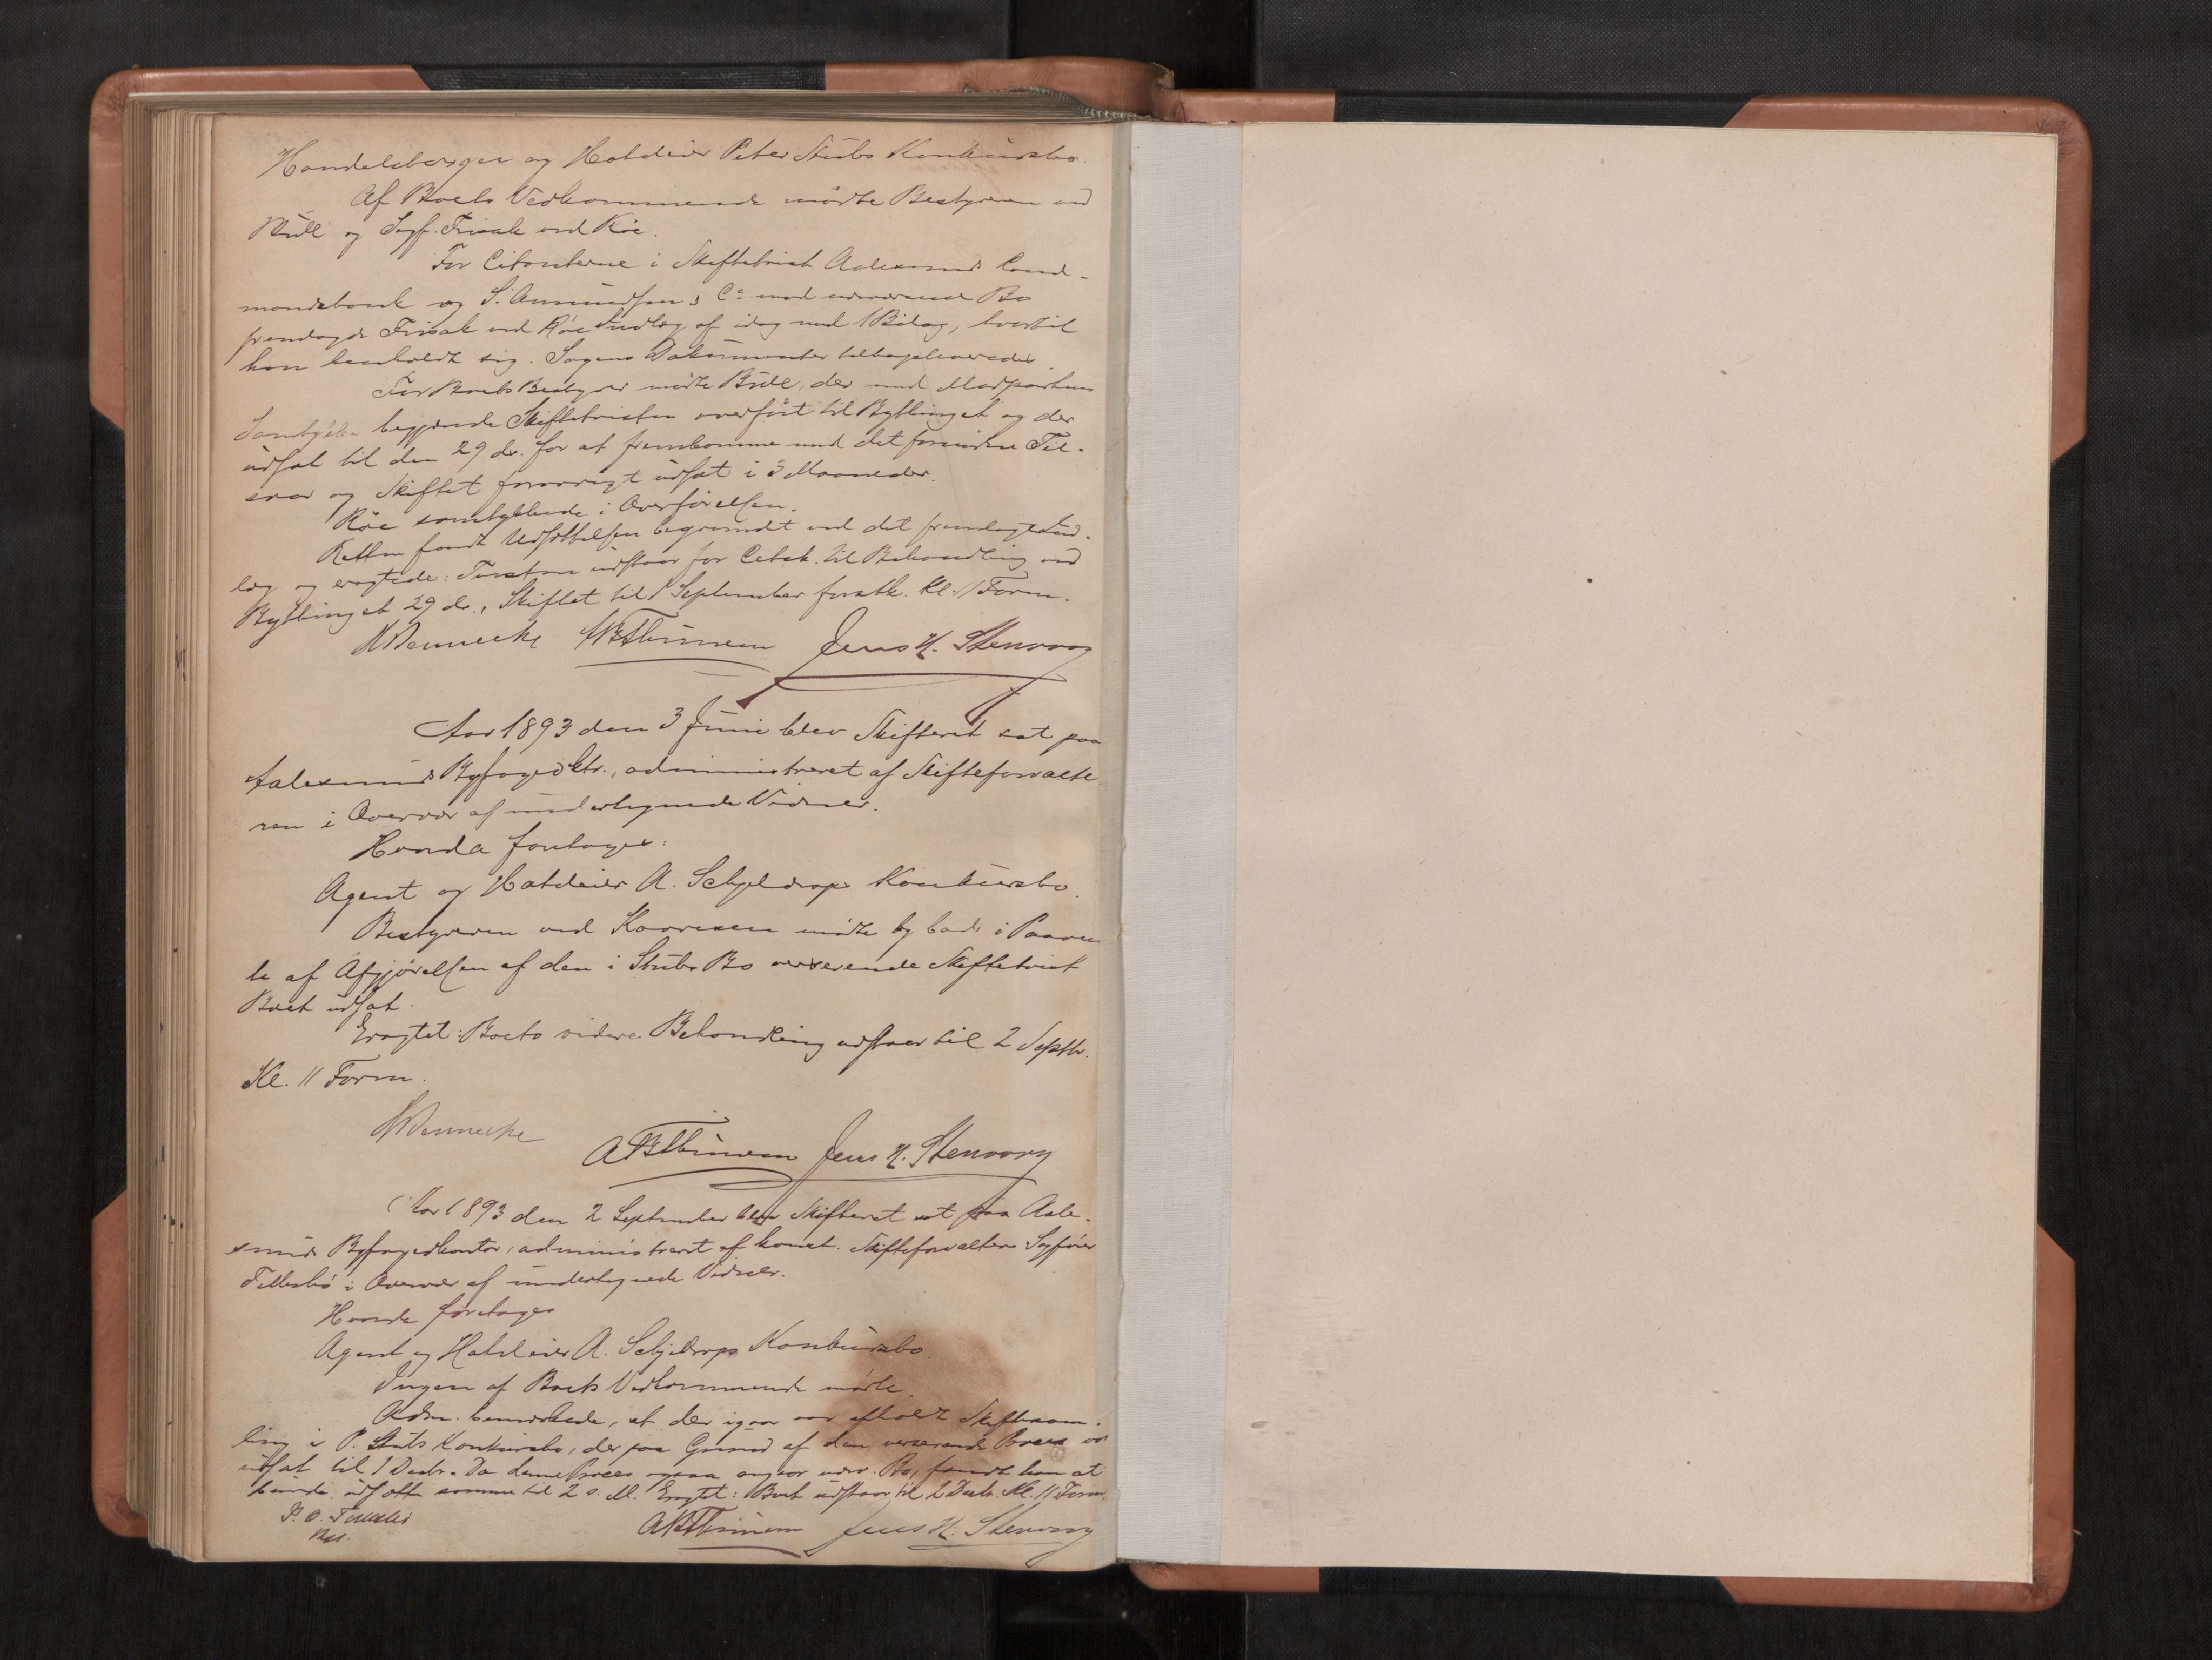 Handelsborger og Hoteleier Peter Stubs Konkursbo.
Af Boets Vedkommende mødte Bestyreren ved
Bull og Sagf. Frisak ved Röe.
For Citanterne i Skiftetvist Aalesunds Land-
mandsbank og S. Amundsen & Co. mod nærværende Bo
fremlagde Frisak ved Röe Indlæg af idag med 1 Bilag, hvortil
han henholdt sig. Sagens Dokumenter tilbageleveredes.
For Boets Bestyrer mødte Bull, der med Modpartens
Samtykke begjærede Skiftetvisten overført til Bythinget og der
udsat til den 29 ds. for at fremkomme med det fornødne Til-
svar og Skiftet forøvrigt udsat i 3 Maaneder.
Röe samtykkede i Overførelsen.
Retten fandt Udsættelsen begrundet ved det fremlagte Ind-
læg og eragtede: Tvisten udstaar for Citat. til Behandling ved
Bythinget 29 ds., Skiftet til 1 September førstk. Kl. 11 Form.
Jens H. Stenvaag
Aar 1893 den 3 Juni blev Skifteret sat paa
Aalesunds Byfogedktr., administreret af Skifteforvalte
ren i Overvær af undertegnede Vidner.
Hvorda foretoges:
Agent og Hoteleier A. Schjeldrops Konkursbo.
Bestyreren ved mødte og bad i Paaven
te af Afgjørelsen af den i Stubs Bo verserende Skiftetvist
Boet udsat.
Eragtet: Boets videre Behandling udstaar til 2 Septbr.
Kl. 11 Form.
Jens H. Stenvaag
Aar 1893 den 2 September blev Skifteret sat paa Aale-
sunds Byfogedkontor, administreret af const. Skifteforvalter Sagfører
i Overvær af undertegnede Vidner.
Hvorda foretoges
Agent og Hoteleier A. Schjeldrops Konkursbo.
Ingen af Boets Vedkommende mødte.
Adm. bemærkede, at der igaar var afholdt Skiftesam-
ling i P. Stubs Konkursbo, der paa Grund af den verserende Proces var
udsat til 1 Decbr. Da denne Proces ogsaa angaar nærv. Bo, fandt han at
burde udsætte samme til 2 s. M. Eragtet: Boet udstaar til 2 Decbr. Kl. 11 Form.
Jens H. Stenvaag